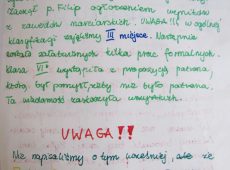 p. Filip ogłoszeniem wyników
zawodów narciarskich. UWAGA!!! W ogólnej
klasyfikacji zajęliśmy III miejsce. Następnie
zostało załatwionych kilka praw formalnych
klasa VI wystąpiła z propozycją patrona,
który, był pomysł, żeby nie było patrona,
Ta wiadomość zaskoczyła wszystkich.
UWAGA!!
Nie napisaliśmy o tym wcześniej, ale że